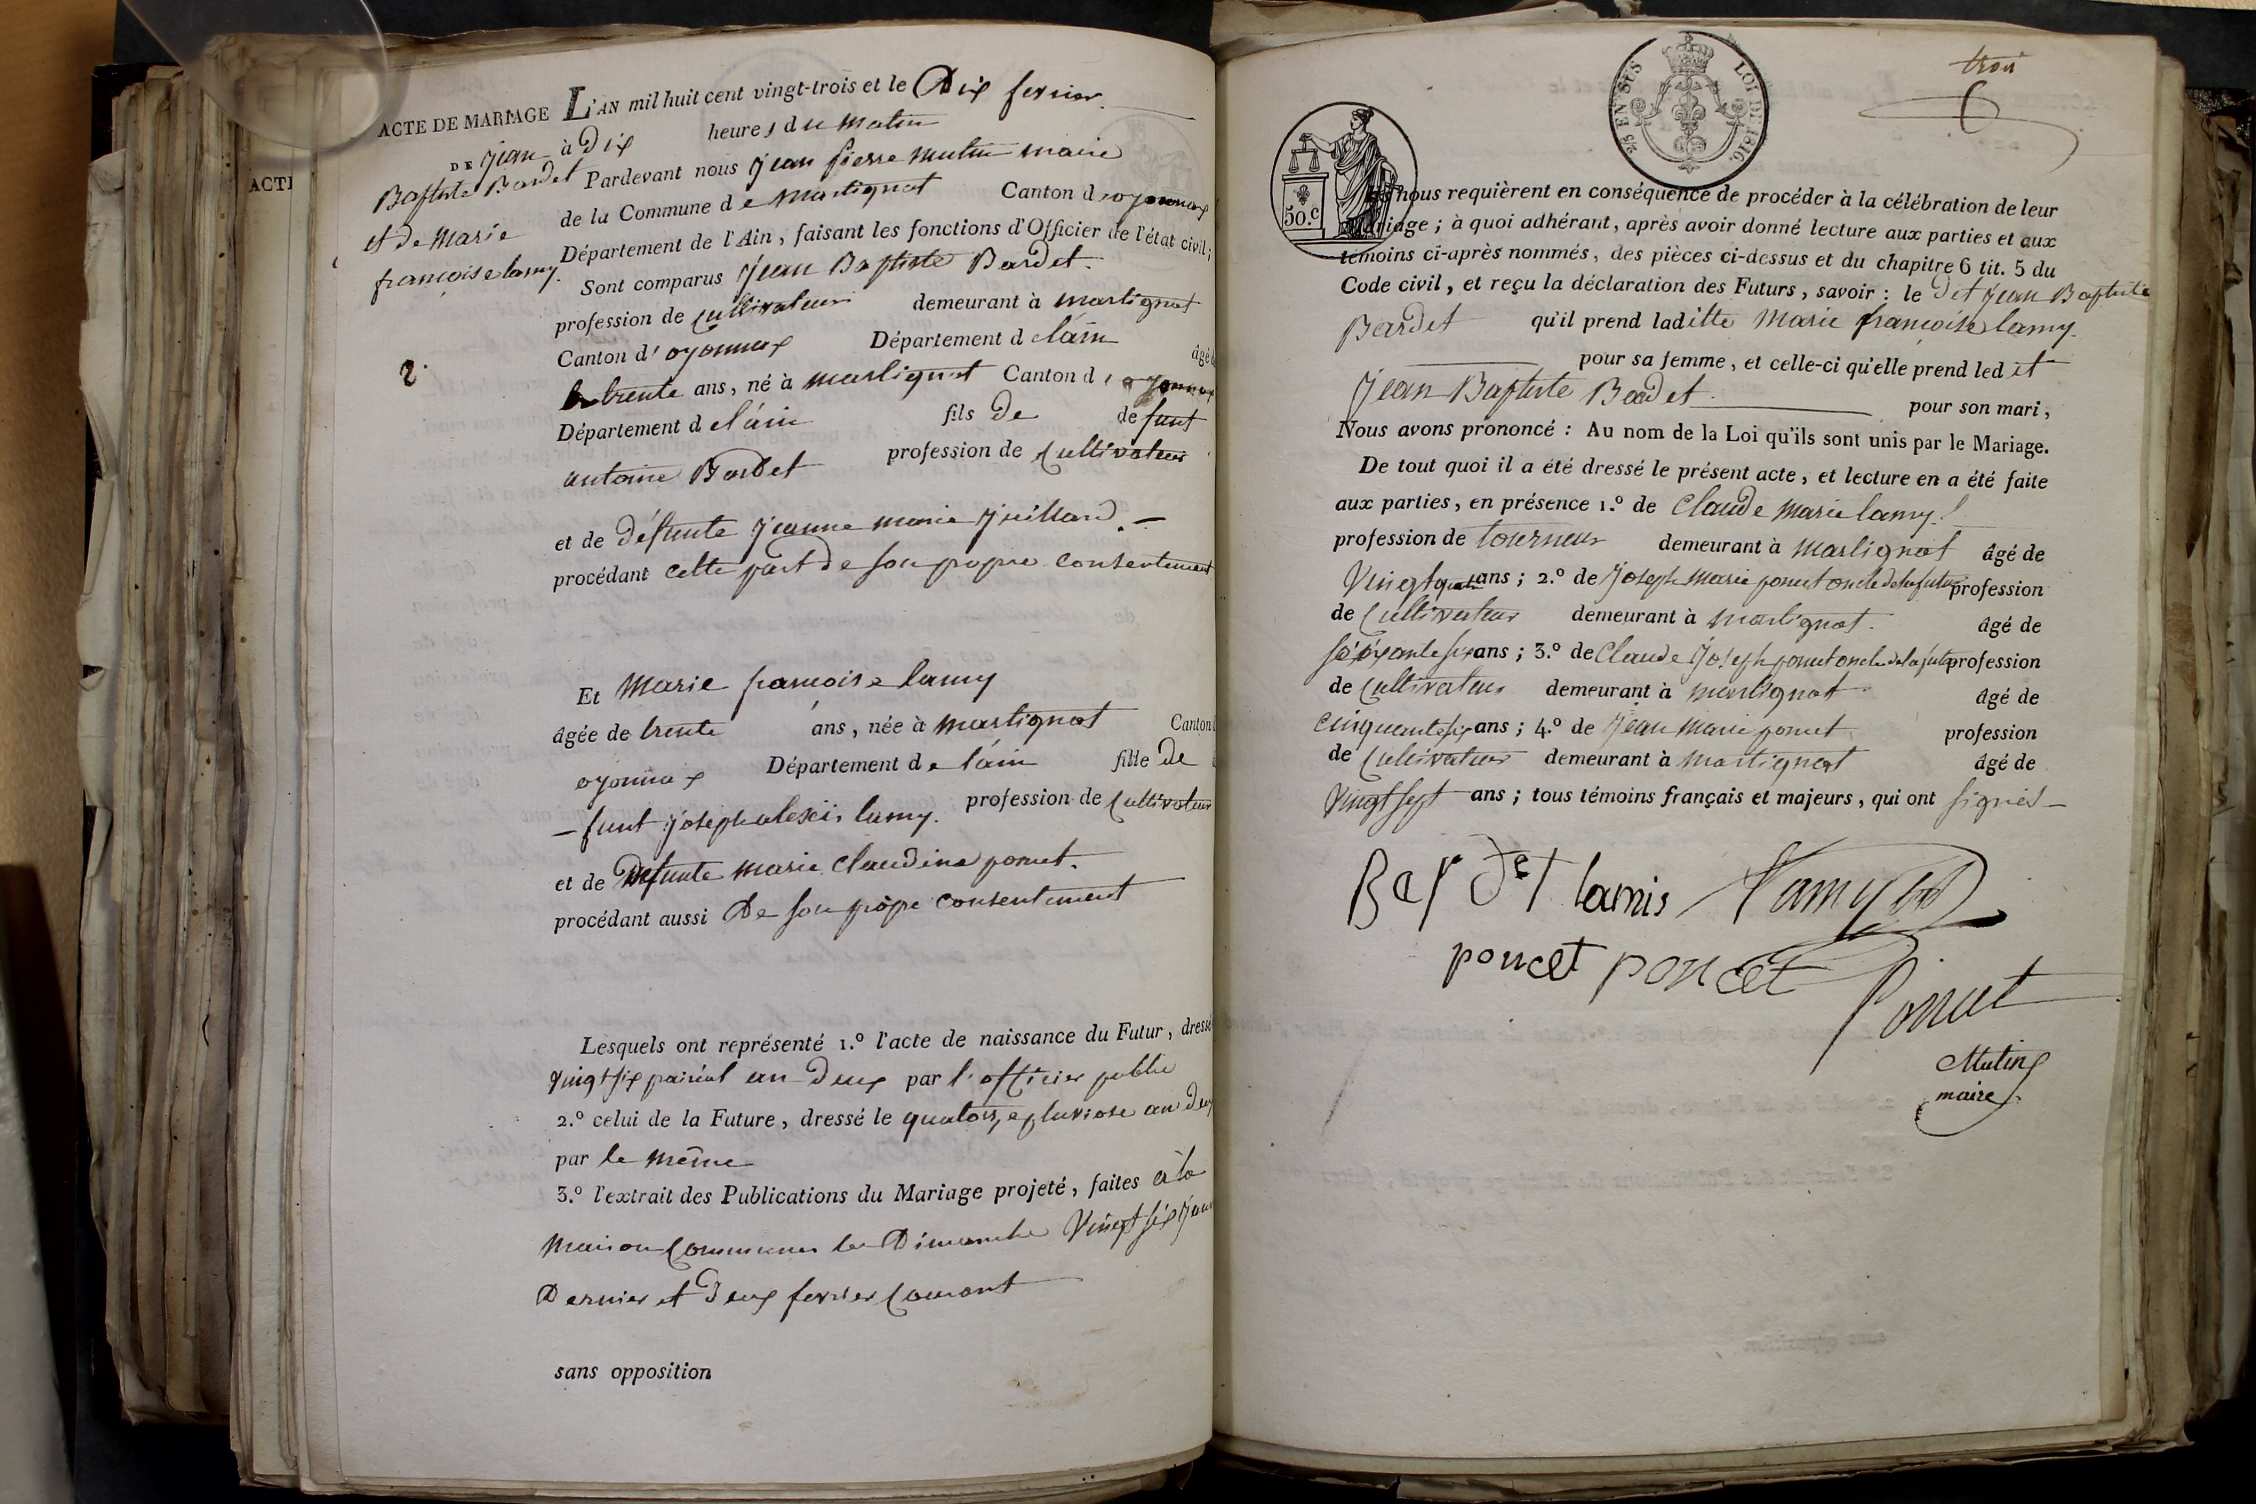 ACTE DE MARIAGE
DE Jean
Baptiste Bardet
et de Marie
françoise lamy.
2.
ACTE
L'AN mil huit cent vingt-trois et le Dix fevrier.
à Dix heures du matin
Pardevant nous Jean pierre mutin maire
de la Commune de martignat Canton d'oyonnax
Département de l'Ain, faisant les fonctions d'Officier de l'état civil;
Sont comparus Jean Baptiste Bardet.
profession de Cultivateur demeurant à martignat
Canton d'oyonnax Département de l'ain âgé
trente ans, né à martignat Canton d'oyonnax
Département de l'ain fils de defunt
antoine Bardet profession de Cultivateur
et de défunte Jeanne marie Juillard.
procédant cette part de son propre consentement
Et Marie francoise lamy
âgée de trente ans, née à martignat Canton
oyonnax Département de l'ain fille de
funt joseph alexis lamy. profession de Cultivateur
et de defunte marie Claudine poncet.
procédant aussi De son prôpre consentement
Lesquels ont représenté 1.º l'acte de naissance du Futur, dressé
Vingt six pairial an deux par l'officier public
2.º celui de la Future, dressé le quatorze pluviose an deux
par le même
3.º l'extrait des Publications du Mariage projeté, faites à la
maison Commune le Dimanche Vingt six Jan
Dernier et Deux fevrier Courant
sans opposition
2/5 EN SUS LOI DE 1816.
50.c
trois
nous requièrent en conséquence de procéder à la célébration de leur
mariage; à quoi adhérant, après avoir donné lecture aux parties et aux
témoins ci-après nommés, des pièces ci-dessus et du chapitre 6 tit. 5 du
Code civil, et reçu la déclaration des Futurs, savoir: le dit Jean Baptiste
Bardet qu'il prend laditte Marie françoise lamy.
pour sa femme, et celle-ci qu'elle prend ledet
Jean Baptiste Badet. pour son mari,
Nous avons prononcé: Au nom de la Loi qu'ils sont unis par le Mariage.
De tout quoi il a été dressé le présent acte, et lecture en a été faite
aux parties, en présence 1.º de Claude marie lamy
profession de tourneur demeurant à martignat âgé de
Vingt quatre ans; 2.º de Joseph marie poncet oncle de la future profession
de Cultivateur demeurant à martignat. âgé de
soixante six ans; 3.º de Claude Joseph poncet oncle de la future profession
de Cultivateur demeurant à martignat âgé de
Cinquante six ans; 4.º de Jean marie poncet profession
de Cultivateur demeurant à martignat âgé de
Vingt sept ans; tous témoins français et majeurs, qui ont signés
Bardet lamis lamy
poncet poncet
Poncet
Mutin
maire.